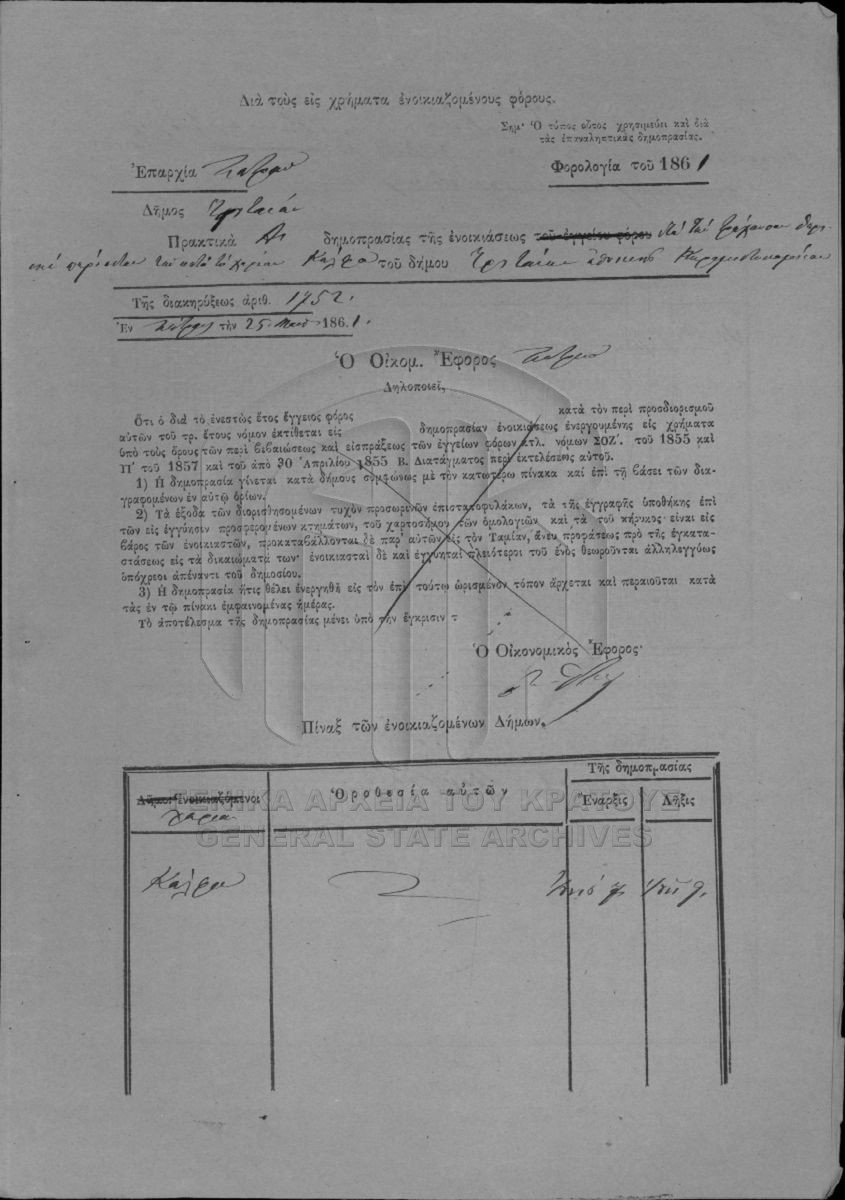 Διὰ τοὺς εἰς χρήματα ἐνοικιαζομένους φόρους.
Σημ· Ὁ τύπος οὗτος χρησιμεύει καὶ διὰ
τὰς ἐπαναληπτικὰς δημοπρασίας.
Ἐπαρχία Πατρῶν
Φορολογία τοῦ 1861
Δῆμος
Πρακτικὰ δημοπρασίας τῆς ἐνοικιάσεως τοῦ ἐγγείου φόρου
Καλφα τοῦ δήμου
Τῆς διακηρύξεως ἀριθ. 1752.
Ἐν Πάτραις τὴν 25 1861.
Ὁ Οἰκομ. Ἔφορος Πατρῶν
Δηλοποιεῖ,
Ὅτι ὁ διὰ τὸ ἐνεστὼς ἔτος ἔγγειος φόρος κατὰ τὸν περὶ προσδιορισμοῦ
αὐτῶν τοῦ τρ. ἔτους νόμον ἐκτίθεται εἰς δημοπρασίαν ἐνοικιάσεως ἐνεργουμένης εἰς χρήματα
ὑπὸ τοὺς ὅρους τῶν περὶ βεβαιώσεως καὶ εἰσπράξεως τῶν ἐγγείων φόρων κτλ. νόμων ΣΟΖ΄. τοῦ 1855 καὶ
Π΄ τοῦ 1857 καὶ τοῦ ἀπὸ 30 Ἀπριλίου 1855 Β. Διατάγματος περὶ ἐκτελέσεως αὐτοῦ.
1) Ἡ δημοπρασία γίνεται κατὰ δήμους συμφώνως μὲ τὸν κατωτέρω πίνακα καὶ ἐπὶ τῇ βάσει τῶν δια-
γραφομένων ἐν αὐτῷ ὁρίων.
2) Τὰ ἔξοδα τῶν διορισθησομένων τυχὸν προσωρινῶν ἐπιστατοφυλάκων, τὰ τῆς ἐγγραφῆς ὑποθήκης ἐπὶ
τῶν εἰς ἐγγύησιν προσφερομένων κτημάτων, τοῦ χαρτοσήμου τῶν ὁμολογιῶν καὶ τὰ τοῦ κήρυκος εἶναι εἰς
βάρος τῶν ἐνοικιαστῶν, προκαταβάλλονται δὲ παρ' αὐτῶν εἰς τὸν Ταμίαν, ἄνευ προφάσεως πρὸ τῆς ἐγκατα-
στάσεως εἰς τὰ δικαιώματά των· ἐνοικιασταὶ δὲ καὶ ἐγγυηταὶ πλειότεροι τοῦ ἑνὸς θεωροῦνται ἀλληλεγγύως
ὑπόχρεοι ἀπέναντι τοῦ δημοσίου.
3) Ἡ δημοπρασία ἥτις θέλει ἐνεργηθῆ εἰς τὸν ἐπὶ τούτῳ ὡρισμένον τόπον ἄρχεται καὶ περαιοῦται κατὰ
τὰς ἐν τῷ πίνακι ἐμφαινομένας ἡμέρας.
Τὸ ἀποτέλεσμα τῆς δημοπρασίας μένει ὑπὸ τὴν ἔγκρισιν τ
Ὁ Οἰκονομικὸς Ἔφορος·
Πίναξ τῶν ἐνοικιαζομένων Δήμων.
Δῆμοι ἐνοικιαζόμενοι
Ὁροθεσία αὐτῶν
Τῆς δημοπρασίας
Ἔναρξις
Λῆξις
χωρία
Καλφα
ΓΕΝΙΚΑ ΑΡΧΕΙΑ ΤΟΥ ΚΡΑΤΟΥΣ
GENERAL STATE ARCHIVES